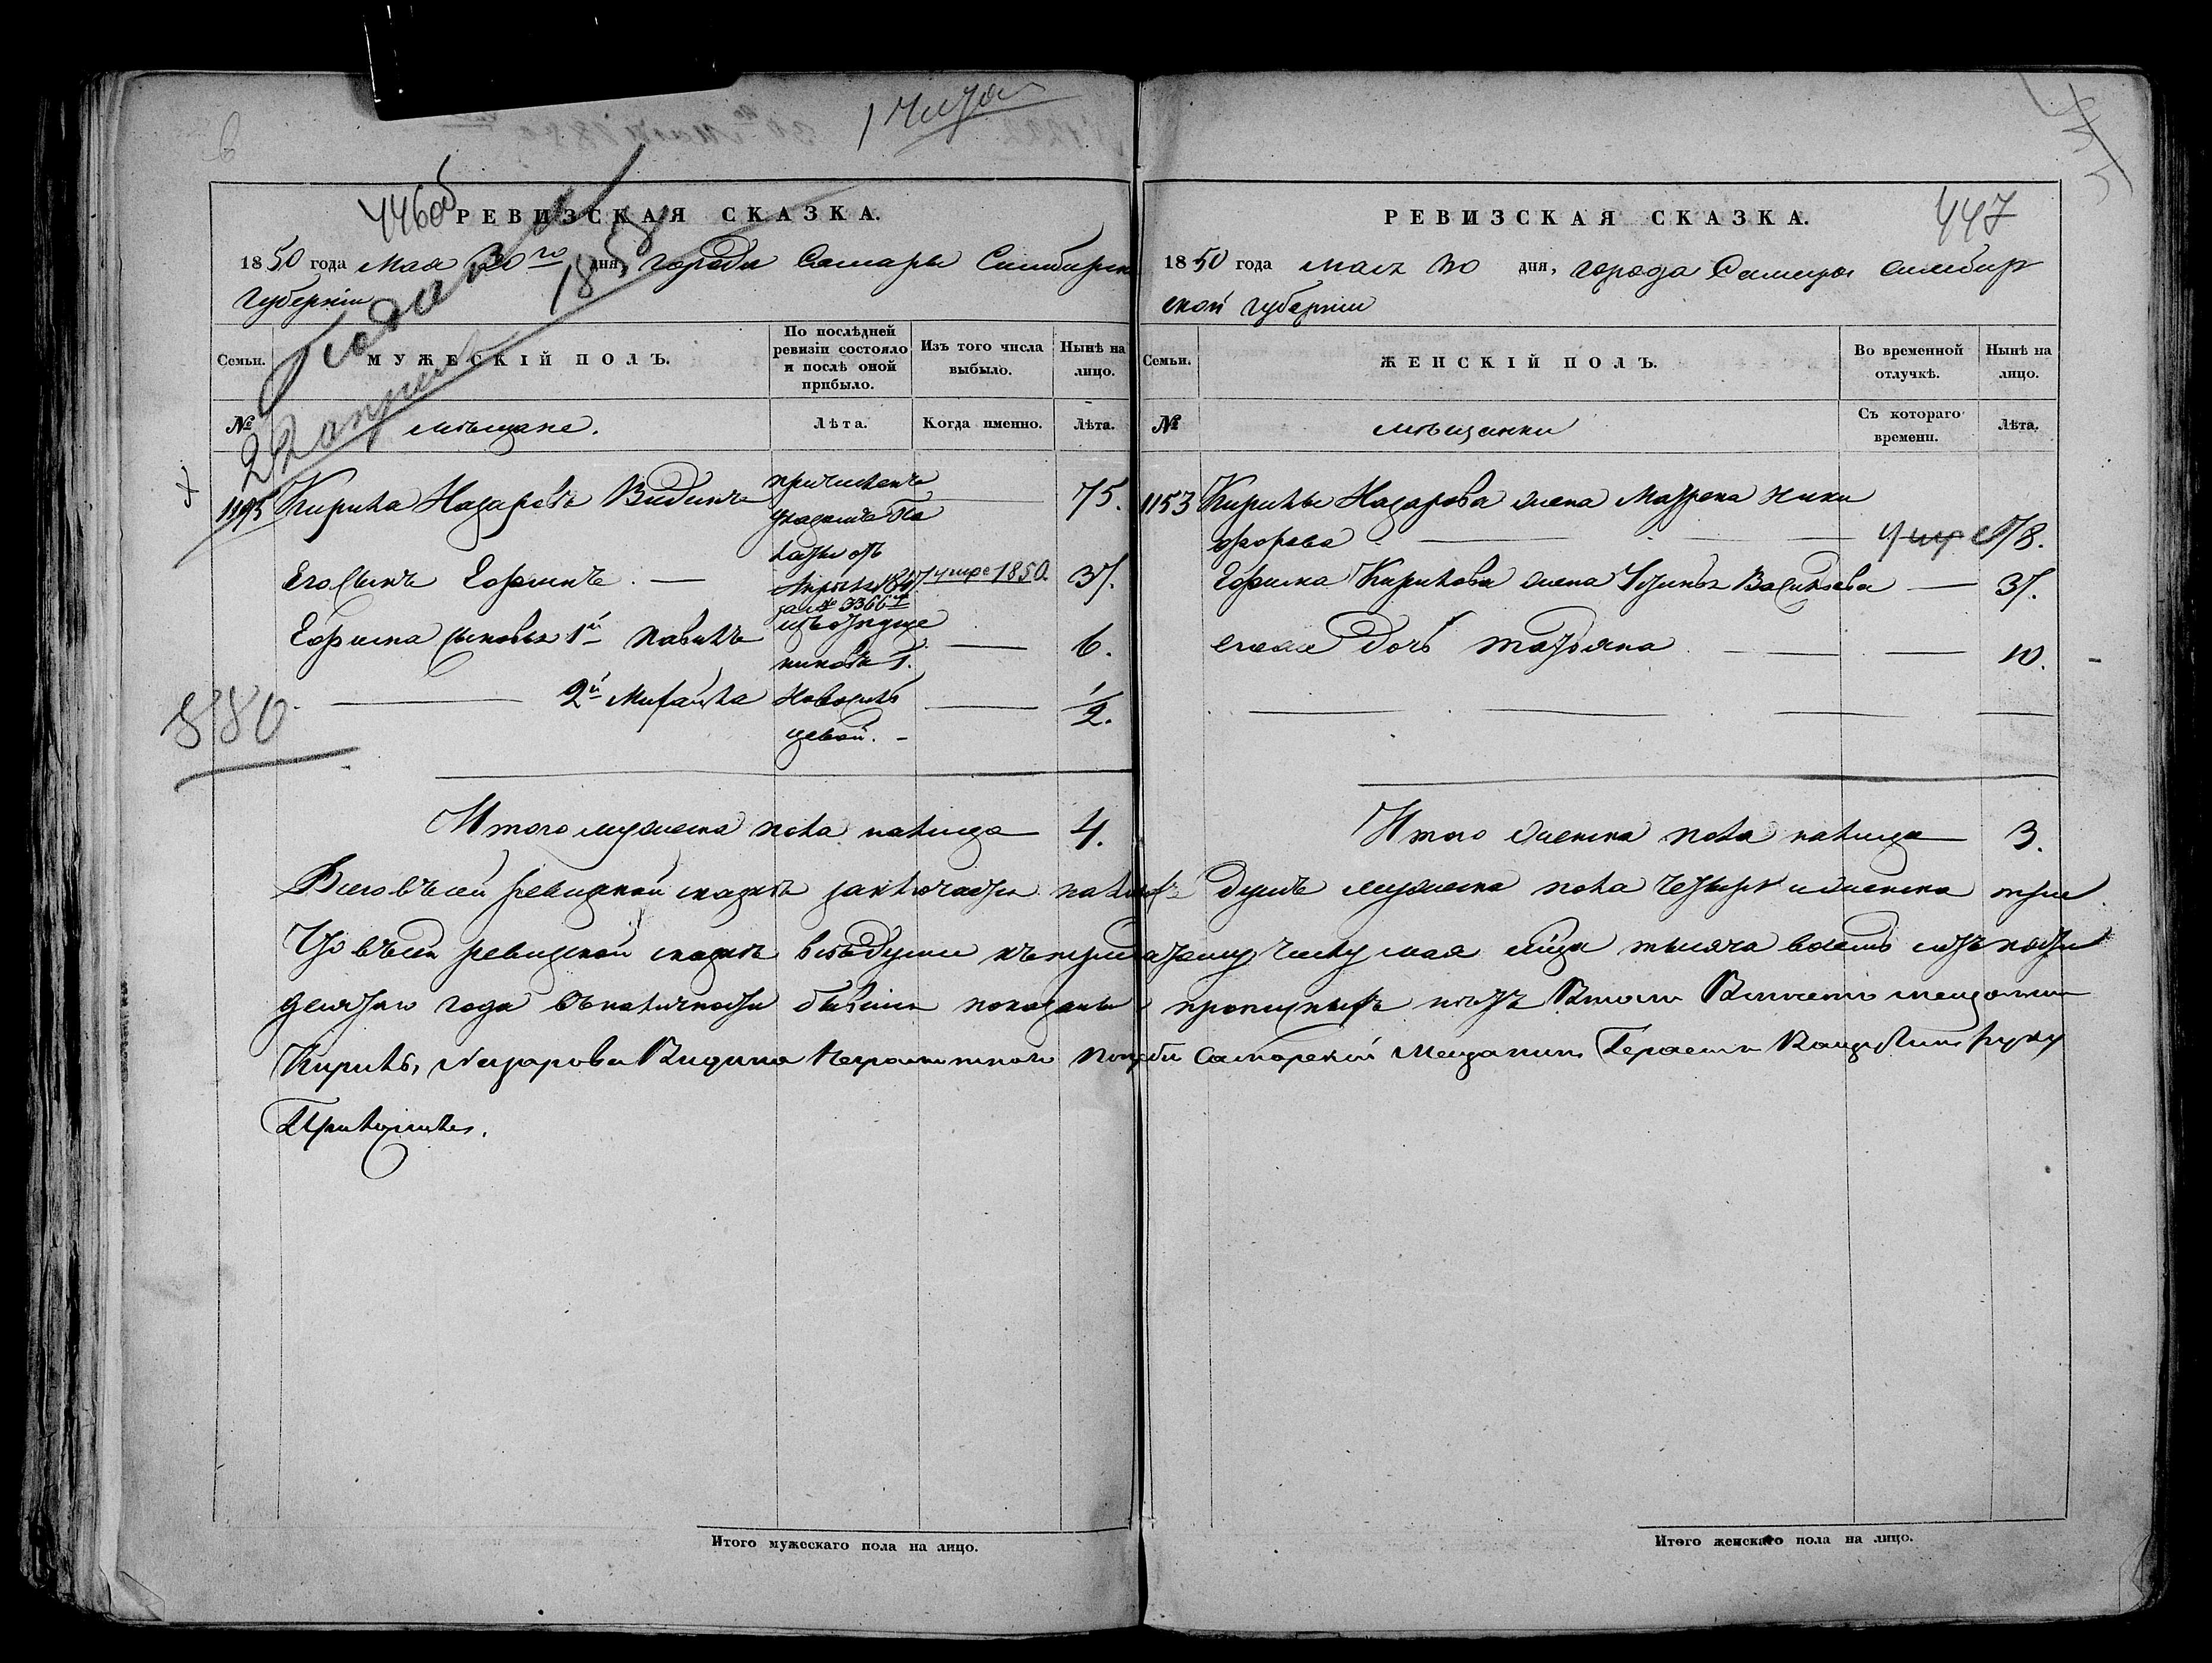 1 читал
446 об
РЕВИЗСКАЯ СКАЗКА.
1850 года Мая 30го дня, города Самары Симбирск
Губернiи
Подана
22 апреля 1858
Семьи.
МУЖЕСКIЙ ПОЛЪ.
По послѣдней ревизiи состояло и послѣ оной прибыло.
Изъ того числа выбыло.
Нынѣ на лицо.
№
мѣщане.
Лѣта.
Когда именно.
Лѣта.
Кирила Назаровъ Видинъ
причисленъ
указомъ Па
латы отъ
75.
Его сынъ Ефимъ
умре 1850.
37.
за № 3366
Ефима сыновья 1й Павилъ
изъ отпуще
никовъ Г.
6.
2й Михайла
Новосиль
цевой.
1/2.
880
Итого мужеска пола налицо 4.
447
РЕВИЗСКАЯ СКАЗКА.
1850 года мая 30 дня, города Самары симбир
ской губернiи
Семьи.
ЖЕНСКIЙ ПОЛЪ.
Во временной отлучкѣ.
Нынѣ на лицо.
№
мѣщанки
Съ котораго времени.
Лѣта.
1153
Кирилы Назарова жена Матрена Ники
форова
умре
78.
Ефима Кирилова жена Устинья Васильева
37.
дочь Татьяна
10.
Итого женска пола налицо 3.
Всего въ сей ревизской сказкѣ заключается налицо душъ мужеска пола четыре и женска три
Что въ сей ревизской сказкѣ всѣ души къ тридцатому числу мая м҃ца тысяча восемь сотъ пяти
десятаго года въ наличности бывшiя показаны и прописныхъ нѣтъ В томъ Вместо мещанина
Кирилы Назарова Видина неграмотного по просьбе Самарскiй Мещанинъ Герасимъ руку
Приложилъ.
Итого мужескаго пола на лицо.
Итого женскаго пола на лицо.